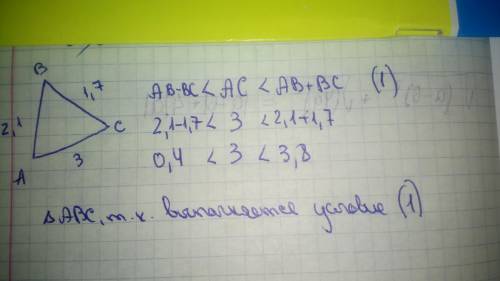 B
AB-BC < AC < AB+BC (1)
1,7
2,1
C
2,1-1,7 < 3 < 2,1+1,7
3
A
0,4 < 3 < 3,8
△ABC, т.к. выполняется условие (1)